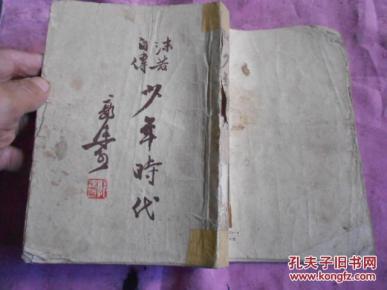 沫若
自傳
少年時代
少年時
孔夫子旧书网
www.kongfz.com